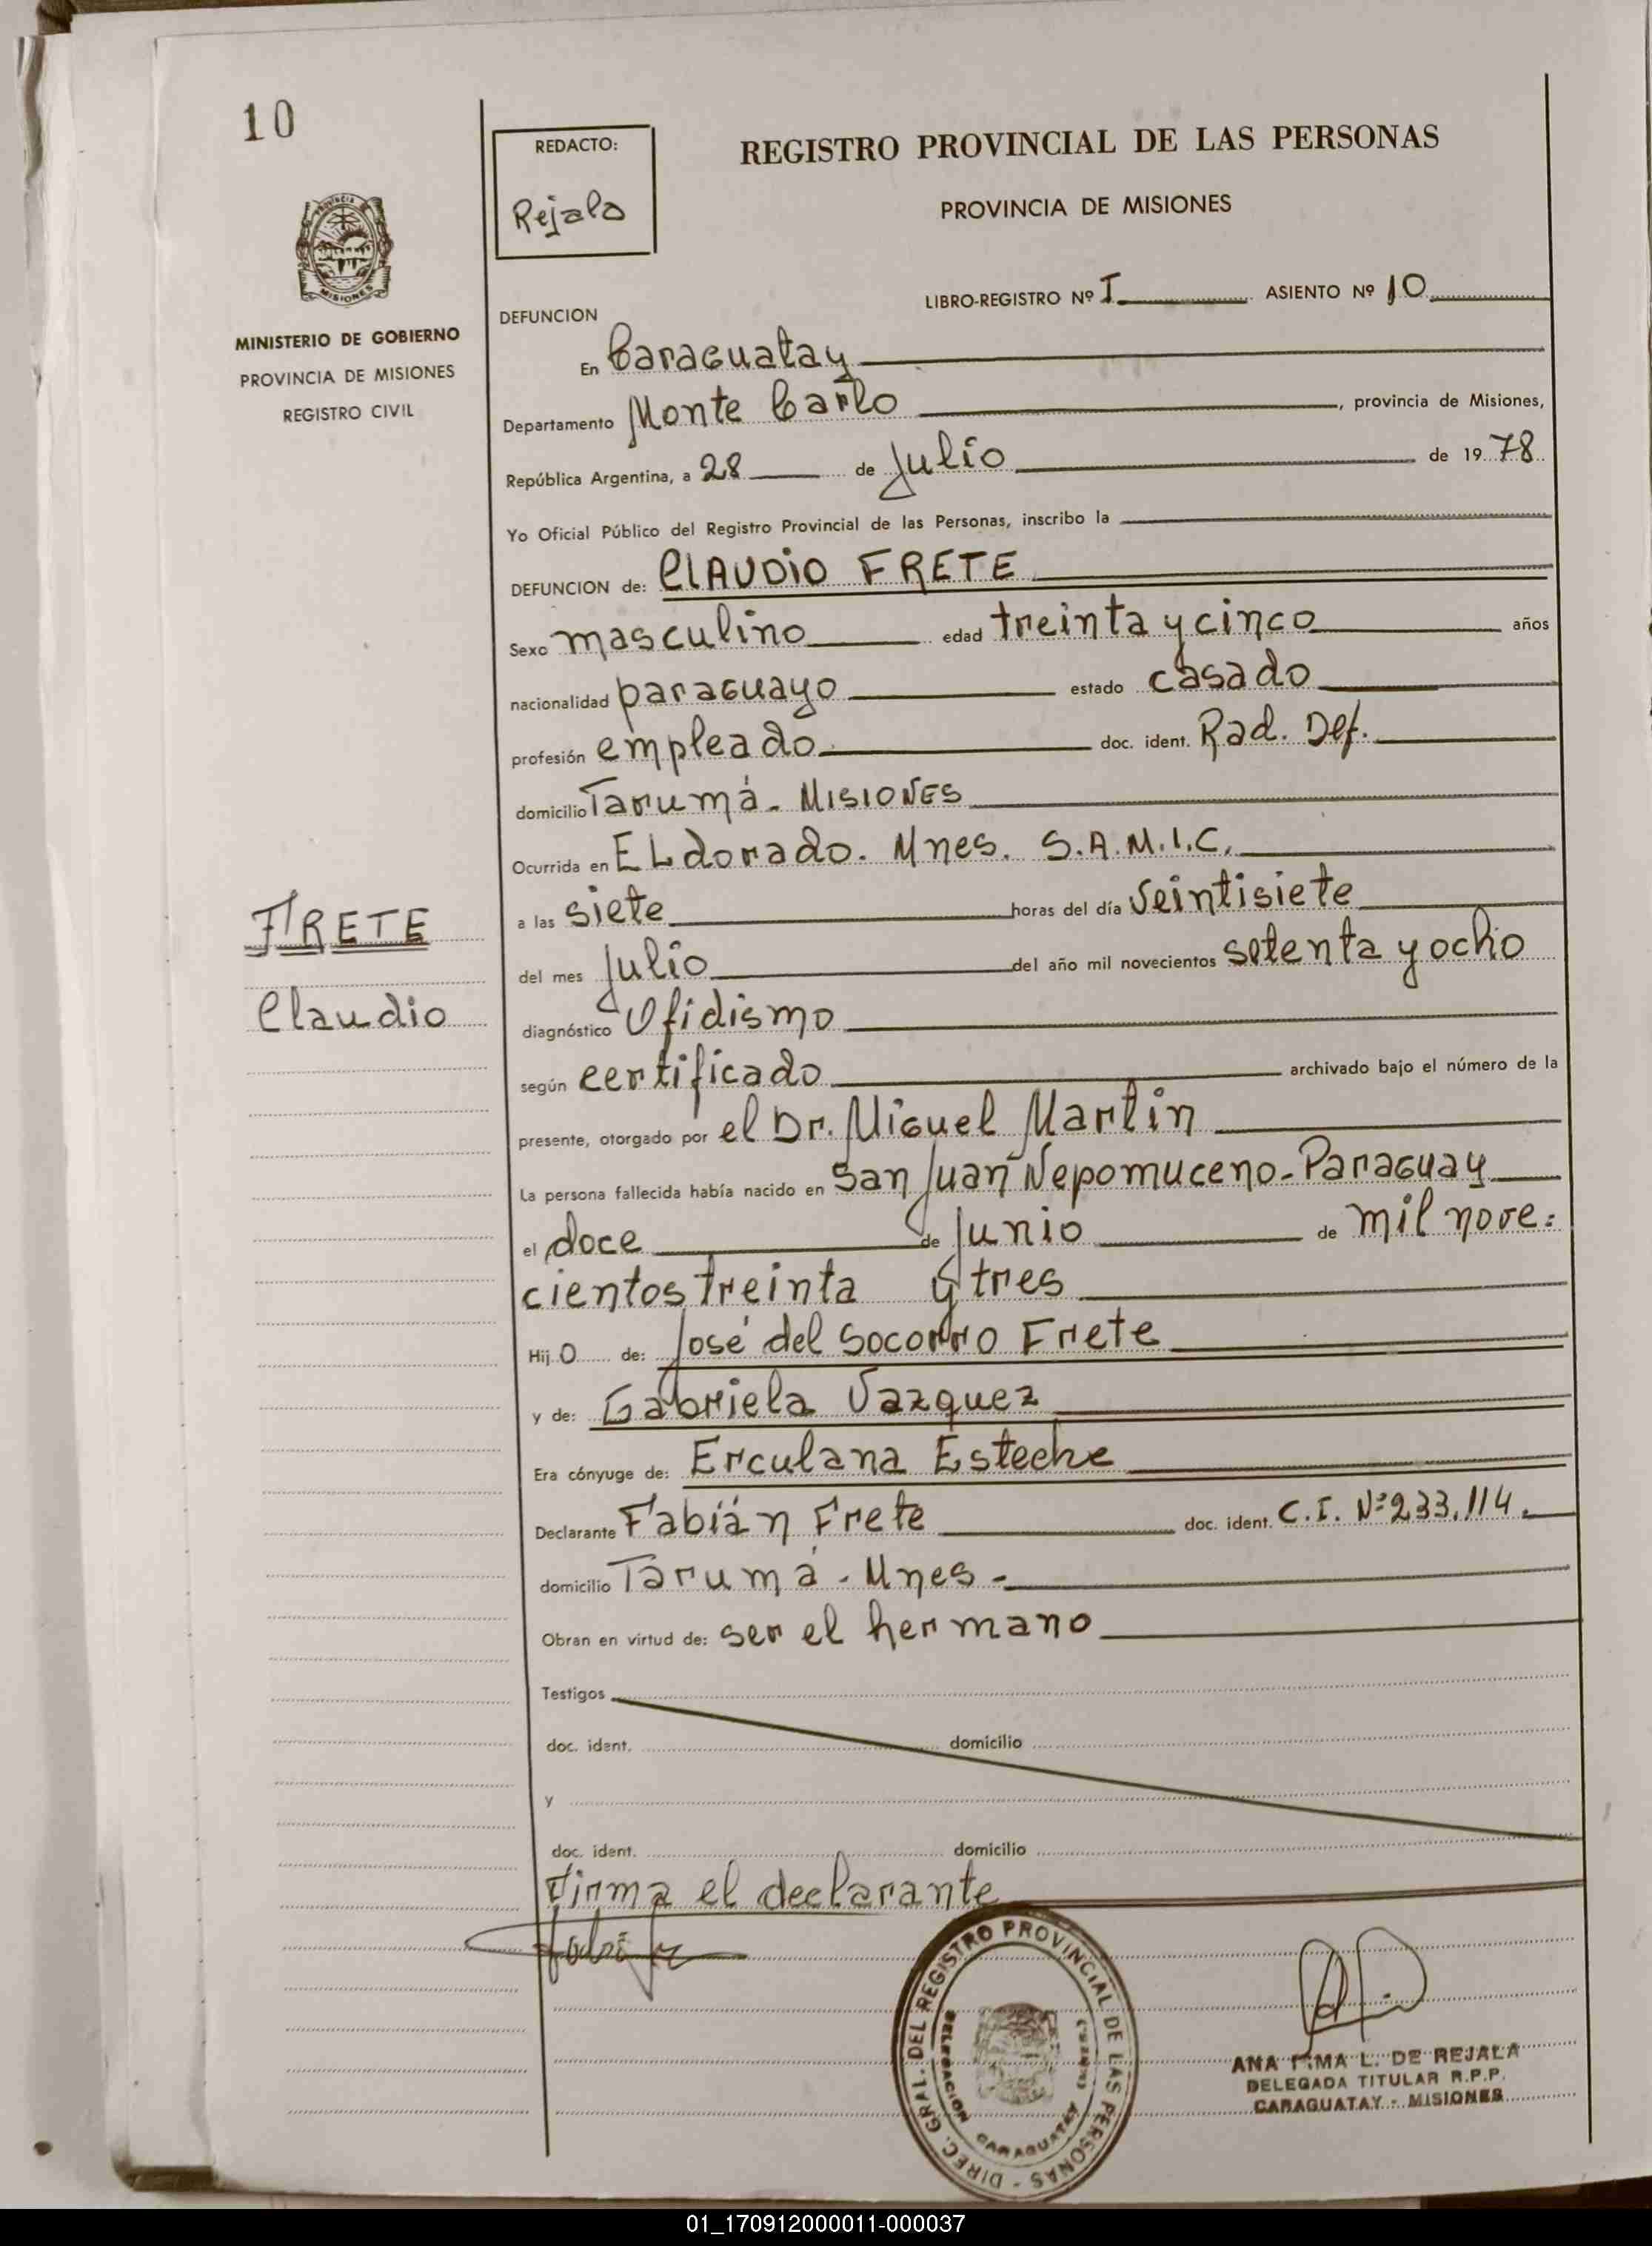 10
REDACTO:
Rejala
REGISTRO PROVINCIAL DE LAS PERSONAS
PROVINCIA DE MISIONES
PROVINCIA
MISIONES
MINISTERIO DE GOBIERNO
PROVINCIA DE MISIONES
REGISTRO CIVIL
LIBRO-REGISTRO Nº I ASIENTO Nº 10
DEFUNCION
En Caraguatay
Departamento Monte Carlo, provincia de Misiones,
República Argentina, a 28 de Julio de 1978
Yo Oficial Público del Registro Provincial de las Personas, inscribo la
DEFUNCION de: CLAUDIO FRETE
Sexo masculino edad treinta y cinco años
nacionalidad paraguayo estado casado
profesión empleado doc. ident. Rad. Def.
domicilio Tarumá - MISIONES
Ocurrida en ELdorado. Mnes. S.A.M.I.C.
a las siete horas del día Veintisiete
del mes Julio del año mil novecientos setenta y ocho
diagnóstico Ofidismo
según certificado archivado bajo el número de la
presente, otorgado por el Dr. Miguel Martin
La persona fallecida había nacido en San Juan Nepomuceno - Paraguay
el doce de Junio de mil nove=
cientos treinta y tres
Hijo de: José del Socorro Frete
y de: Gabriela Vazquez
Era cónyuge de: Erculana Esteche
Declarante Fabián Frete doc. ident. C.I. Nº 233.114.
domicilio Tarumá - Mnes -
Obran en virtud de: ser el hermano
Testigos
doc. ident. domicilio
y
doc. ident. domicilio
Firma el declarante
FRETE
Claudio
DIREC. GRAL. DEL REGISTRO PROVINCIAL DE LAS PERSONAS
DELEGACION CARAGUATAY
ANA L. DE REJALA
DELEGADA TITULAR R.P.P.
CARAGUATAY - MISIONES
01_170912000011-000037